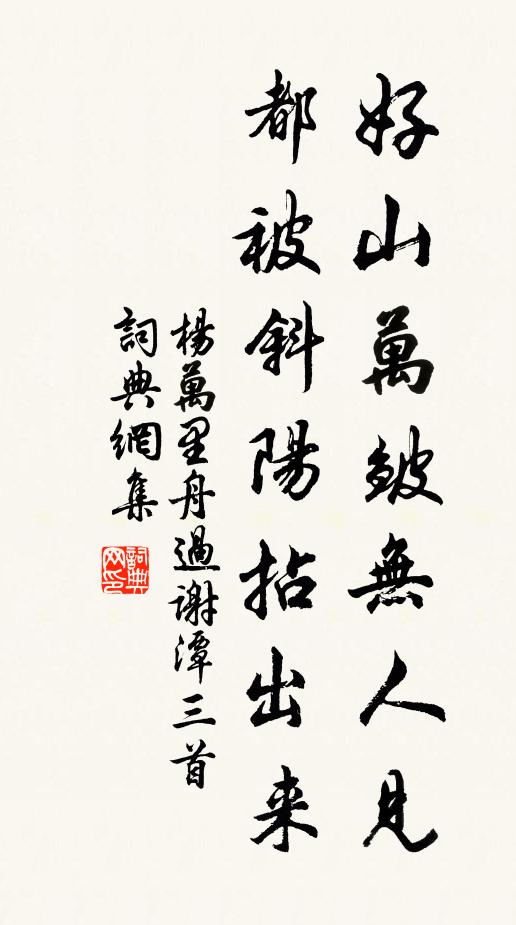 好山萬皴無人見
都被斜陽拈出来
楊萬里舟過謝潭三首
詞典網集
詞典网印